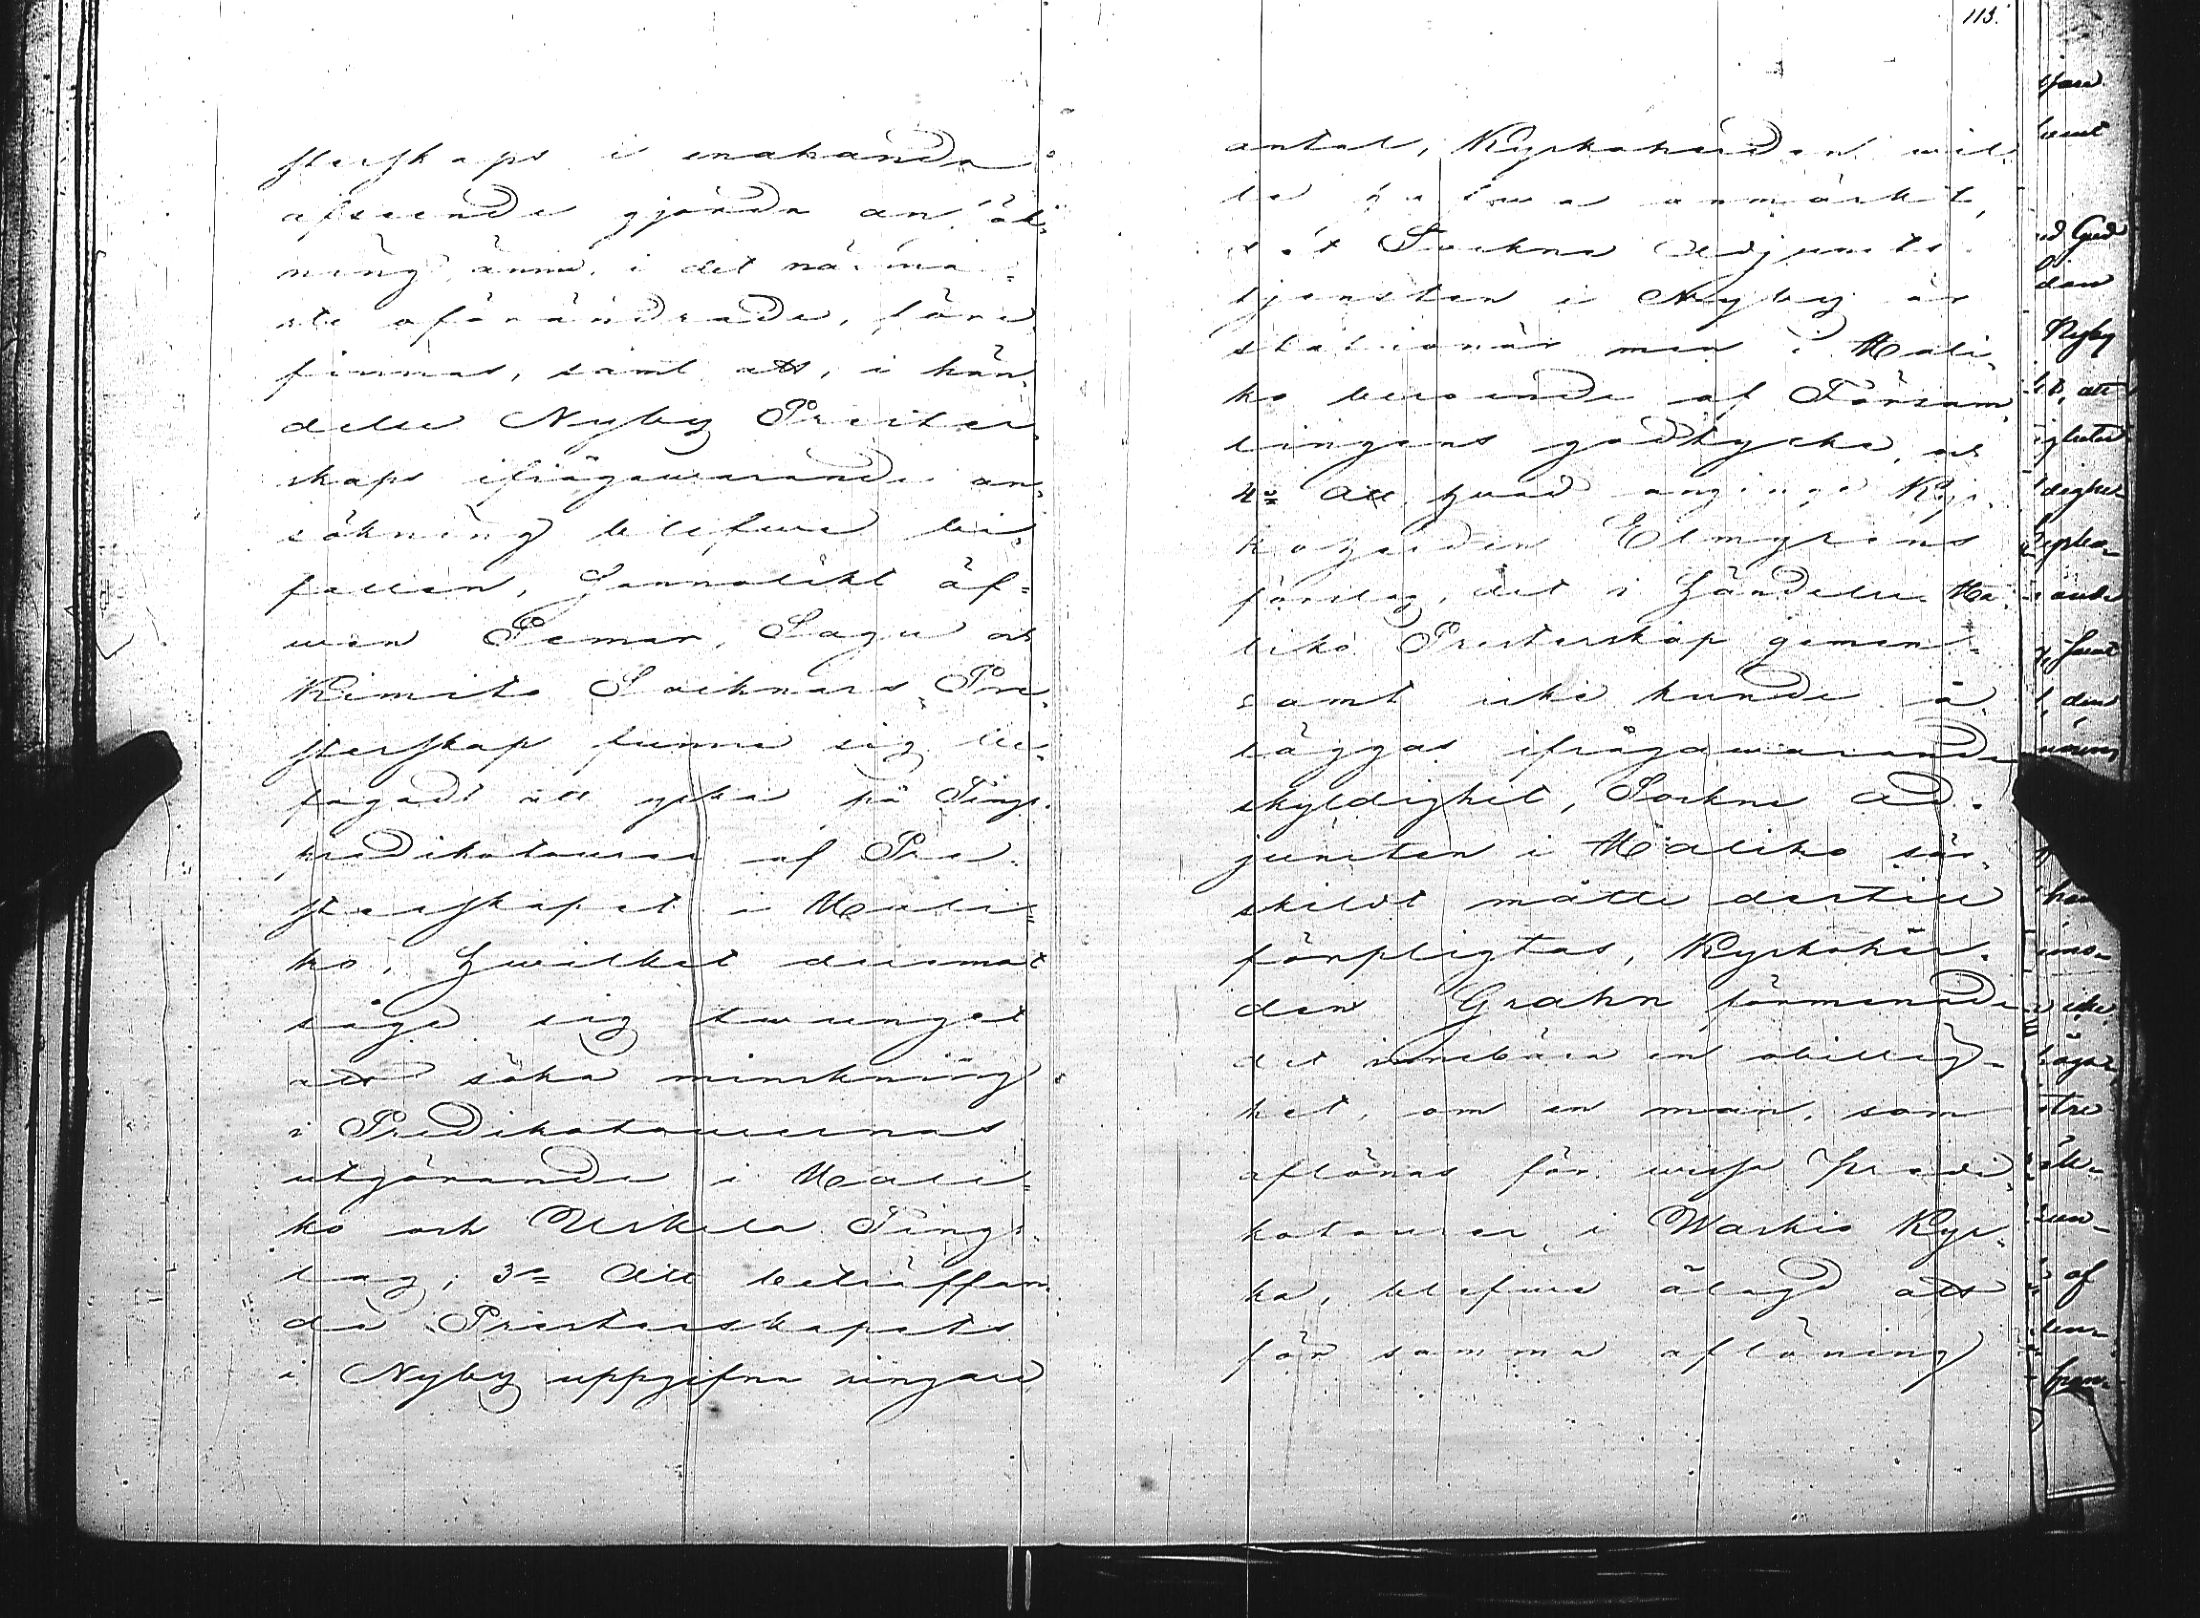 sterskaps i enahanda
afseende gjorda ansök-
ning ännu i det närma-
ste oförändrade, före-
finnas, samt att, i hän-
delse Nyby Prester-
skaps ifrågawarande an-
sökning blefwe bi-
fallen, sannolikt äf-
wen Pemar, Sagu och
Kimito Socknars Pre-
sterskap funne sig be-
fogadt att yrka på Tings-
predikoturer af Pre-
sterskapet i Hali-
ko, hwilket deremot
såge sig twunget
att söka minskning
i Predikoturernas
utgörande i Hali-
ko och Uskela Tings-
lag; 3o Att beträffan-
de Presterskapets
i Nyby uppgifna ringare
113.
antal, Kyrkoherden wil-
le hafwa anmärkt,
att Sockne Adjuncts-
tjensten i Nyby är
stationär men i Hali-
ko beroende af Försam-
lingens godtycke, och
4o Att hwad anginge Kyr-
koherden Elmgrens
förslag, det i händelse Ha-
liko Presterskap gemen-
samt icke kunde å-
läggas ifrågawarande
skyldighet, Sockne Ad-
juncten i Haliko sär-
skildt måtte dertill
förpligtas, Kyrkoher-
den Grahn förmenade
det innebära en obillig-
het, om en man, som
aflönas för wissa Predi-
koturer i Waskio Kyr-
ka, blefwe ålagd att
för samma aflöning